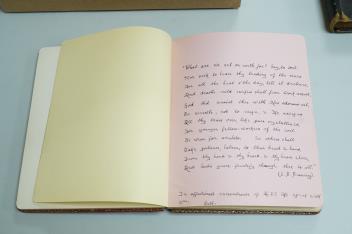 "What are we set on earth for? Say, to toil
Nor seek to leave thy tending of the vines
For all the heat o' the day, till it declines,
And death's mild curfew shall from work assoil.
God did anoint thee with his odorous oil,
To wrestle, not to reign; & He assigns
All thy tears over, like pure crystallines,
For younger fellow-workers of the soil
To wear for amulets. So others shall
Take patience, labour, to their heart & hand
From thy hand & thy heart & thy brave cheer,
And God's grace fructify through thee to all."
(E. B. Browning)
In affectionate remembrance of